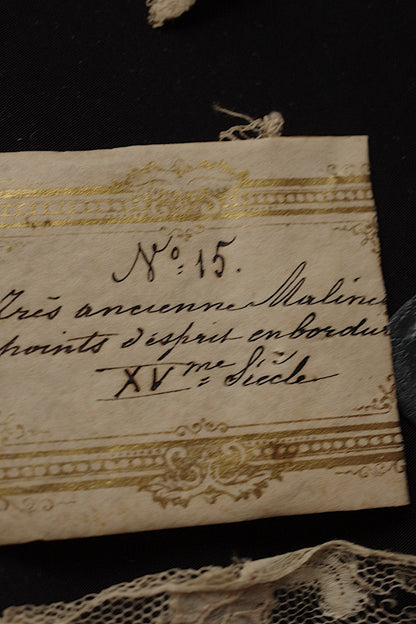 Nº 15.
Très ancienne Maline
points d'esprit en bordur
XVme Siècle